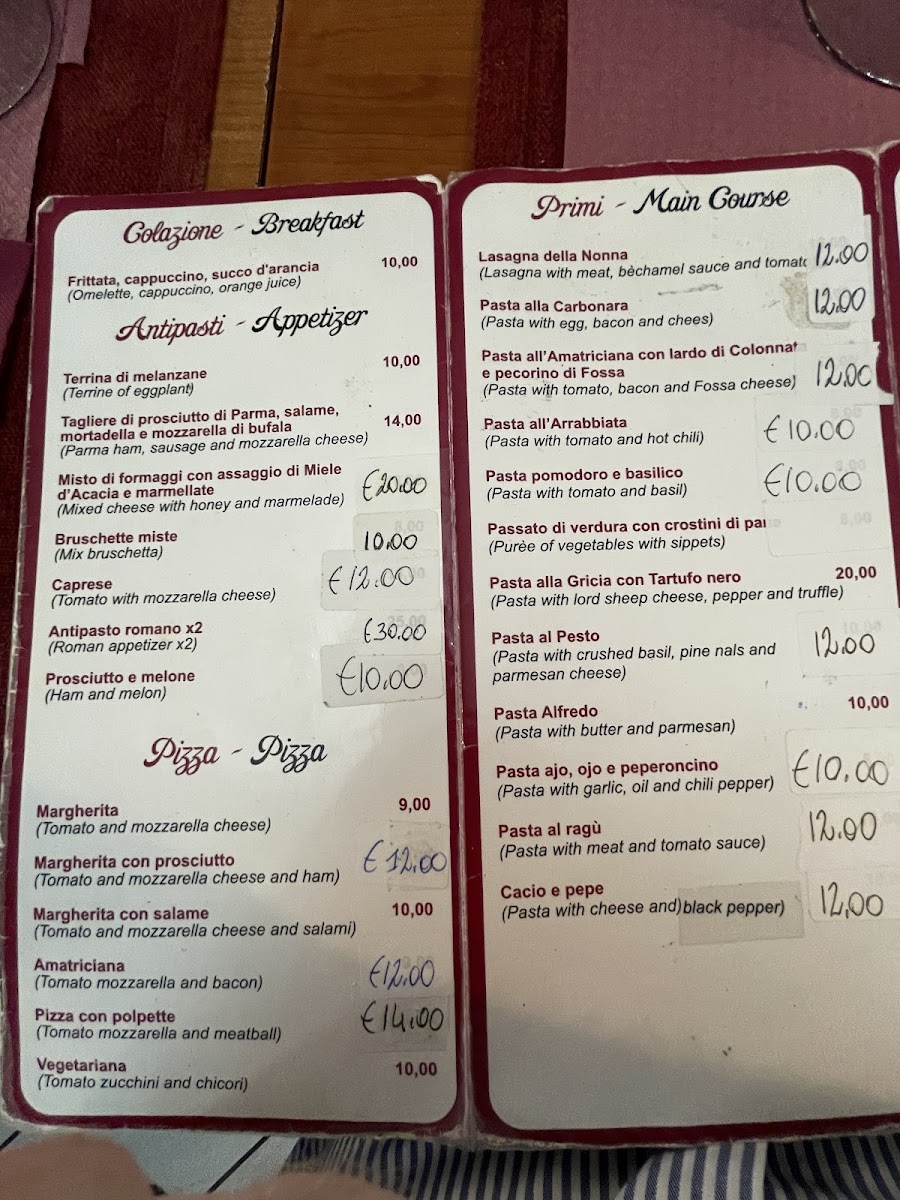 Colazione - Breakfast
Frittata, cappuccino, succo d'arancia 10,00
(Omelette, cappuccino, orange juice)
Antipasti - Appetizer
Terrina di melanzane 10,00
(Terrine of eggplant)
Tagliere di prosciutto di Parma, salame,
mortadella e mozzarella di bufala 14,00
(Parma ham, sausage and mozzarella cheese)
Misto di formaggi con assaggio di Miele
d'Acacia e marmellate €20.00
(Mixed cheese with honey and marmelade)
Bruschette miste 10.00
(Mix bruschetta)
Caprese €12.00
(Tomato with mozzarella cheese)
Antipasto romano x2 €30.00
(Roman appetizer x2)
Prosciutto e melone €10.00
(Ham and melon)
Pizza - Pizza
Margherita 9,00
(Tomato and mozzarella cheese)
Margherita con prosciutto €12.00
(Tomato and mozzarella cheese and ham)
Margherita con salame 10,00
(Tomato and mozzarella cheese and salami)
Amatriciana €12.00
(Tomato mozzarella and bacon)
Pizza con polpette €14.00
(Tomato mozzarella and meatball)
Vegetariana 10,00
(Tomato zucchini and chicori)
Primi - Main Course
Lasagna della Nonna 12.00
(Lasagna with meat, bèchamel sauce and tomato
Pasta alla Carbonara 12.00
(Pasta with egg, bacon and chees)
Pasta all'Amatriciana con lardo di Colonnat
e pecorino di Fossa 12.00
(Pasta with tomato, bacon and Fossa cheese)
Pasta all'Arrabbiata €10.00
(Pasta with tomato and hot chili)
Pasta pomodoro e basilico €10.00
(Pasta with tomato and basil)
Passato di verdura con crostini di pane 8,00
(Purèe of vegetables with sippets)
Pasta alla Gricia con Tartufo nero 20,00
(Pasta with lord sheep cheese, pepper and truffle)
Pasta al Pesto 12.00
(Pasta with crushed basil, pine nals and
parmesan cheese)
Pasta Alfredo 10,00
(Pasta with butter and parmesan)
Pasta ajo, ojo e peperoncino €10.00
(Pasta with garlic, oil and chili pepper)
Pasta al ragù 12.00
(Pasta with meat and tomato sauce)
Cacio e pepe 12,00
(Pasta with cheese and)black pepper)